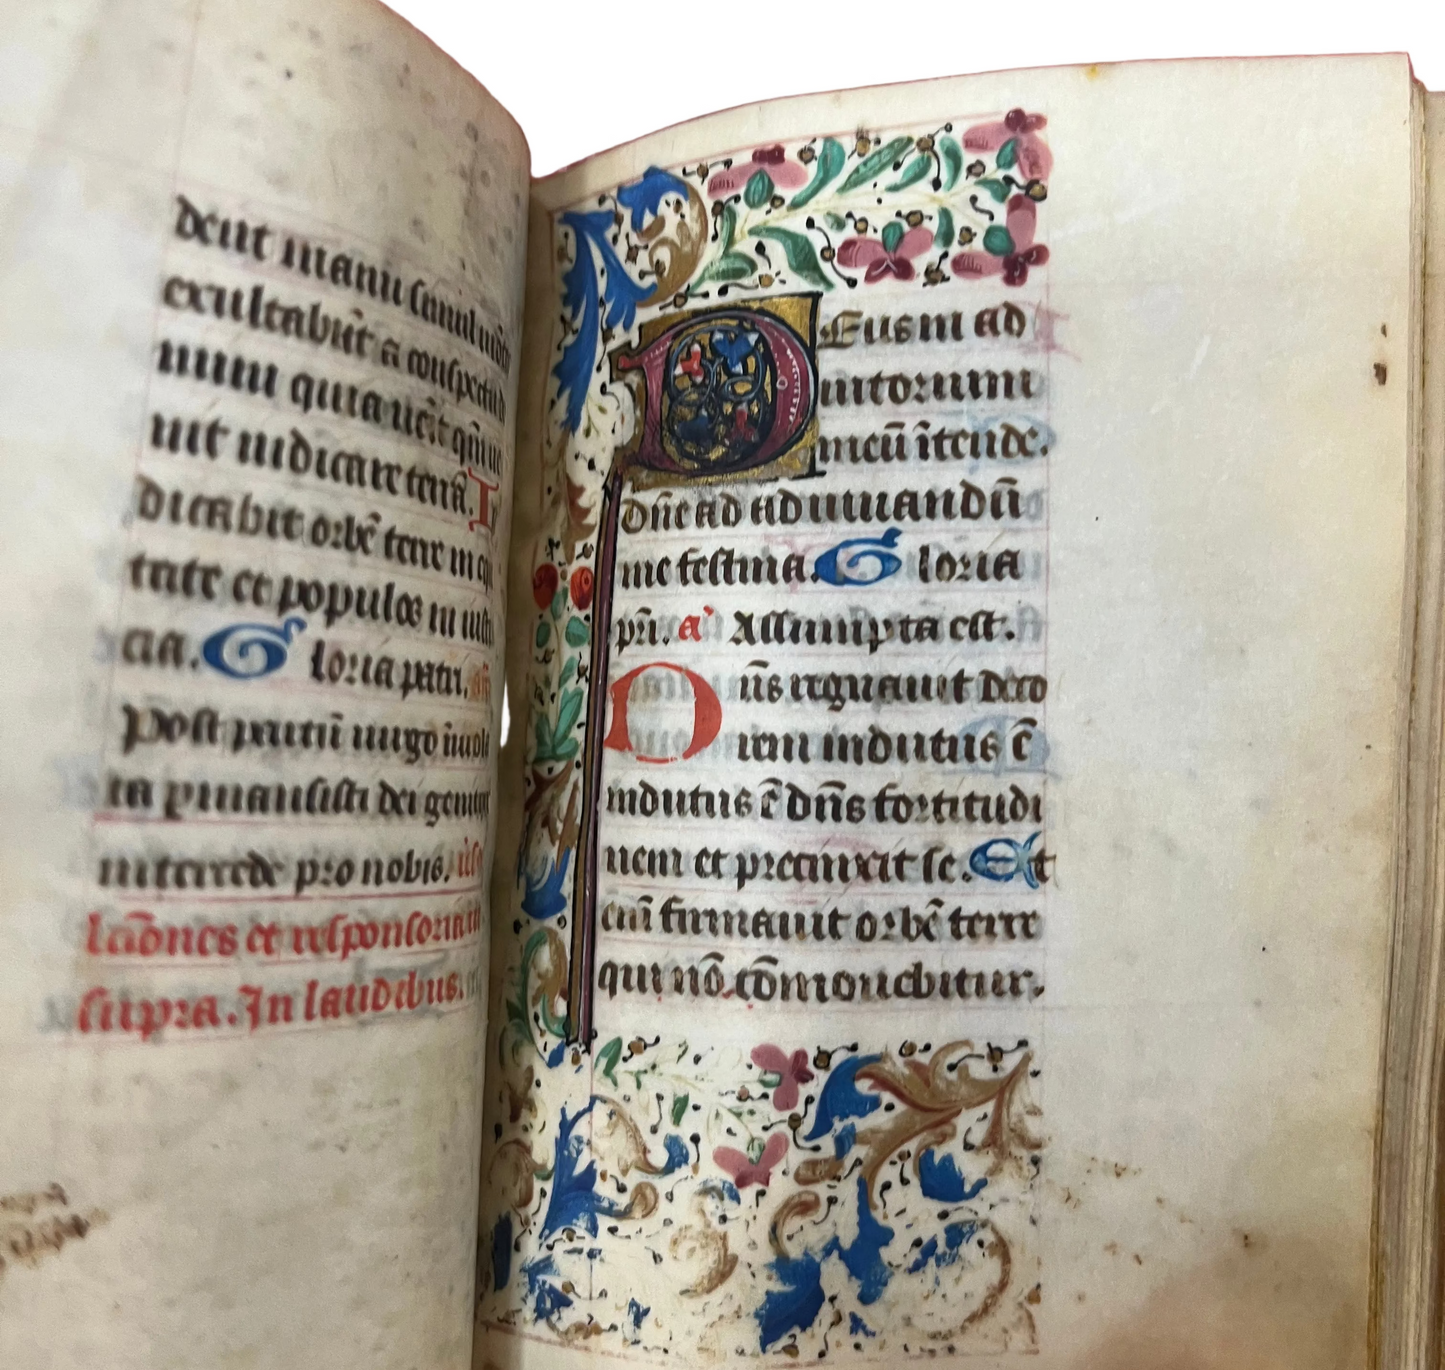 dent manu simul mōt
exultabūt a conspectu d
num quia uēit qm̄ ue
nit iudicare terrā. Iu
dicabit orbē terre in equi
tate et populos in iusti
cia. Gloria patri. añ
Post partū uirgo īuiola
ta ꝑmansisti dei genitrix
intercede pro nobis.
lcōnes et responsoria
supra. In laudibus.
Deus in ad
iutorium
meū ītende.
Dñe ad adiuuandū
me festina. Gloria
pr̄i. a Assumpta est.
Dn̄s regnauit deco
rem indutus ē
indutus ē dn̄s fortitudi
nem et precinxit se. Et
eni firmauit orbē terre
qui nō cōmouebitur.